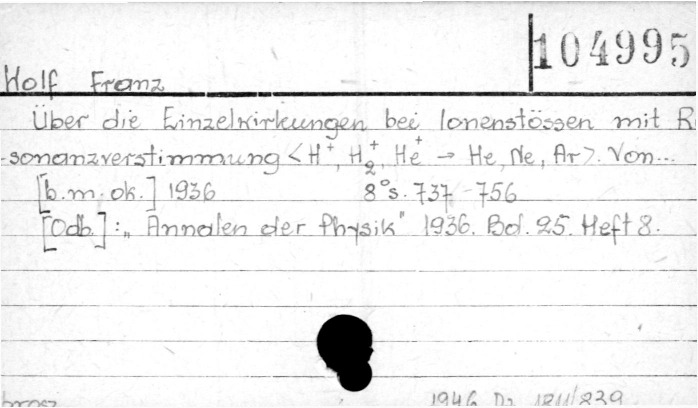 104995
Wolf Franz
Über die Einzelwirkungen bei Ionenstössen mit R
sonanzverstimmung <H⁺, H₂⁺, He⁺ → He, Ne, Ar>. Von...
[b.m. ok.] 1936 8° s. 737-756
[Odb.]: „Annalen der Physik" 1936. Bd. 25. Heft 8.
brosz. 1946 Dz 1811/839